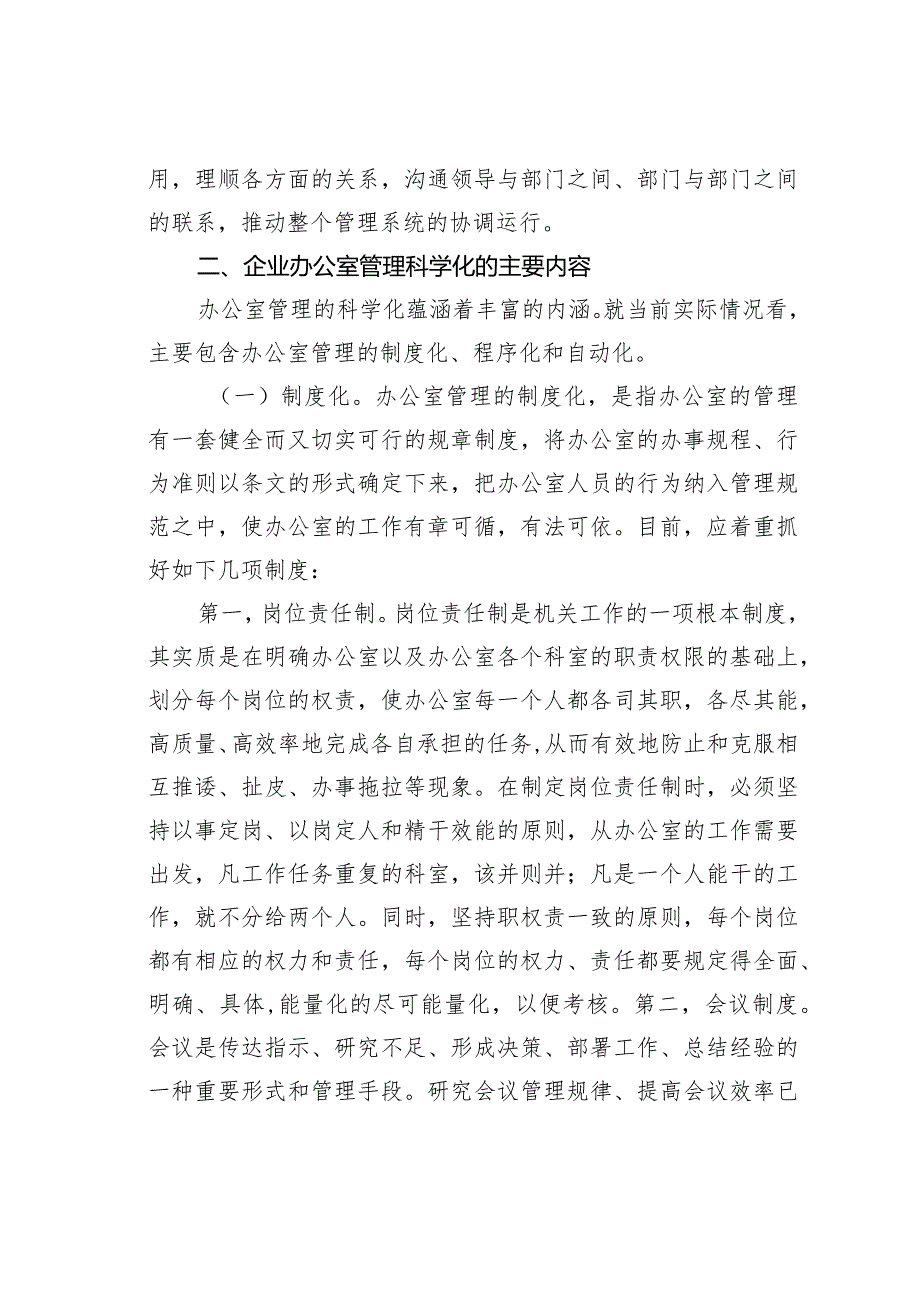 用，理顺各方面的关系，沟通领导与部门之间、部门与部门之间
的联系，推动整个管理系统的协调运行。
二、企业办公室管理科学化的主要内容
办公室管理的科学化蕴涵着丰富的内涵。就当前实际情况看，
主要包含办公室管理的制度化、程序化和自动化。
（一）制度化。办公室管理的制度化，是指办公室的管理
有一套健全而又切实可行的规章制度，将办公室的办事规程、行
为准则以条文的形式确定下来，把办公室人员的行为纳入管理规
范之中，使办公室的工作有章可循，有法可依。目前，应着重抓
好如下几项制度：
第一，岗位责任制。岗位责任制是机关工作的一项根本制度，
其实质是在明确办公室以及办公室各个科室的职责权限的基础上，
划分每个岗位的权责，使办公室每一个人都各司其职，各尽其能，
高质量、高效率地完成各自承担的任务,从而有效地防止和克服相
互推诿、扯皮、办事拖拉等现象。在制定岗位责任制时，必须坚
持以事定岗、以岗定人和精干效能的原则，从办公室的工作需要
出发，凡工作任务重复的科室，该并则并；凡是一个人能干的工
作，就不分给两个人。同时，坚持职权责一致的原则，每个岗位
都有相应的权力和责任，每个岗位的权力、责任都要规定得全面、
明确、具体,能量化的尽可能量化，以便考核。第二，会议制度。
会议是传达指示、研究不足、形成决策、部署工作、总结经验的
一种重要形式和管理手段。研究会议管理规律、提高会议效率已